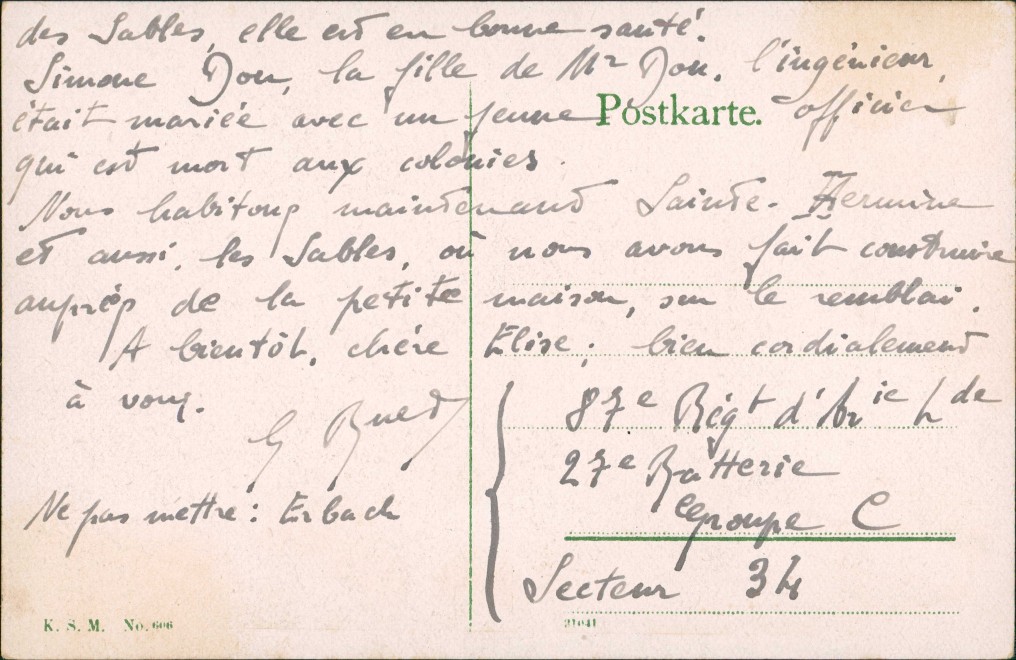 des Sables, elle est en bonne santé.
Simone Don, la fille de Mr Don, l'ingénieur,
était mariée avec un jeune officier
Postkarte.
qui est mort aux colonies.
Nous habitons maintenant Sainte-Hermine
et aussi, les Sables, où nous avons fait construire
auprès de la petite maison, sur le remblai.
A bientôt, chère Elise; bien cordialement
à vous.
G
Ne pas mettre: Erbach
87e Régt d'Arie Lde
27e Batterie
Groupe C
Secteur 34
K. S. M. No. 606
21041